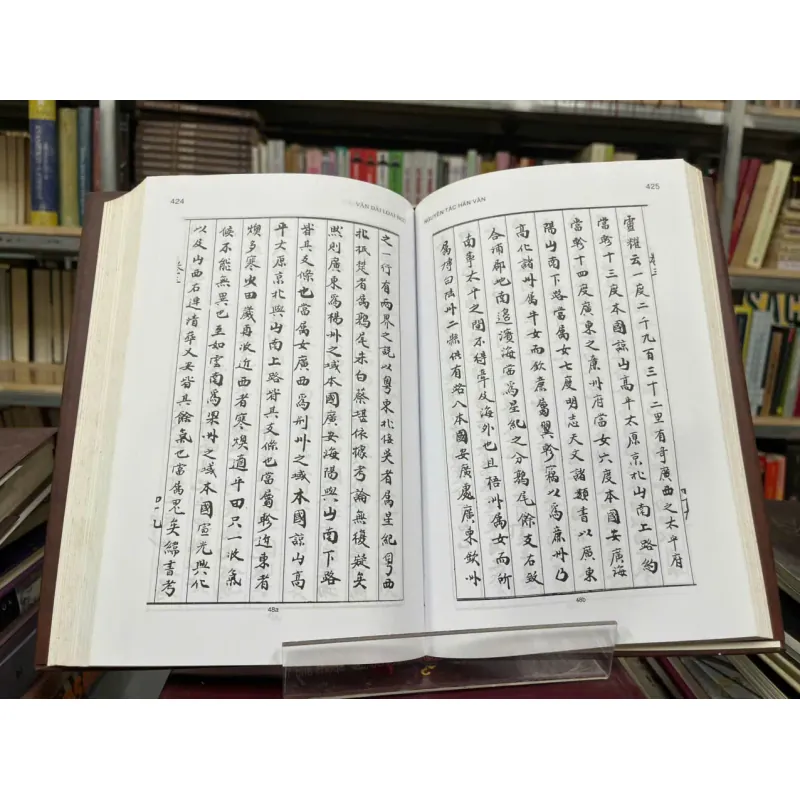 424
VÂN ĐÀI LOẠI NGỮ
之一行有兩界之說以粵東北侵吳者屬星紀粵西
北抵楚者屬鶉尾朱白蔡堪依據考論無復疑矣
然則廣東為楊州之域本國廣安海陽與山南下路
皆其支條也當屬女廣西為荊州之域本國諒山高
平太原京北與山南上路皆其支條也當屬軫近東者
燠多寒田歲再收近西者寒燠適平田只一收氣
候不能無異也至如雲南為梁州之域本國宣光興化
以及山西右連清華乂安皆其餘氣也當屬鬼矣緯書考
48a
NGUYÊN TÁC HÁN VĂN
425
靈耀云一度二千九百三十二里有奇廣西之太平府
當軫十三度本國諒山高平太原京北山南上路約
當軫十四度廣東之廉州府當女六度本國安廣海
陽山南下路當屬女七度明志天文諸類書以廣東
高化諸州屬牛女而欽廉屬翼軫以為廉州乃
合浦郡地南邊濱海當為星紀之分鶉尾條支右致
南寧太平之間不得及海外也且梧州屬女而所
屬博白陸川二縣俱有路入本國安廣處廣東欽州
48b